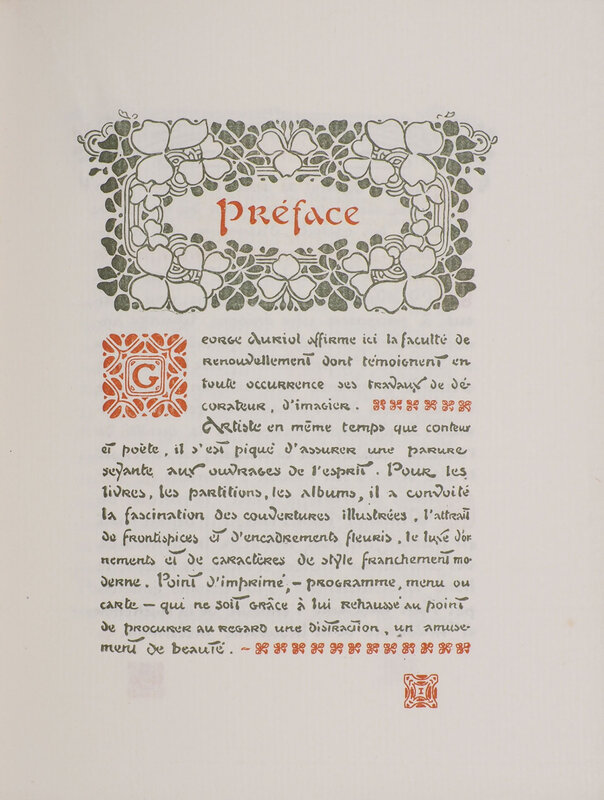 Préface
George Auriol affirme ici la faculté de
renouvellement dont témoignent en
toute occurrence ses travaux de dé-
corateur, d'imagier.
Artiste en même temps que conteur
et poète, il s'est piqué d'assurer une parure
seyante aux ouvrages de l'esprit. Pour les
livres, les partitions, les albums, il a convoité
la fascination des couvertures illustrées, l'attrait
de frontispices et d'encadrements fleuris, le luxe d'or
nements et de caractères de style franchement mo-
derne. Point d'imprimé, – programme, menu ou
carte – qui ne soit grâce à lui rehaussé au point
de procurer au regard une distraction, un amuse-
ment de beauté. ~
I